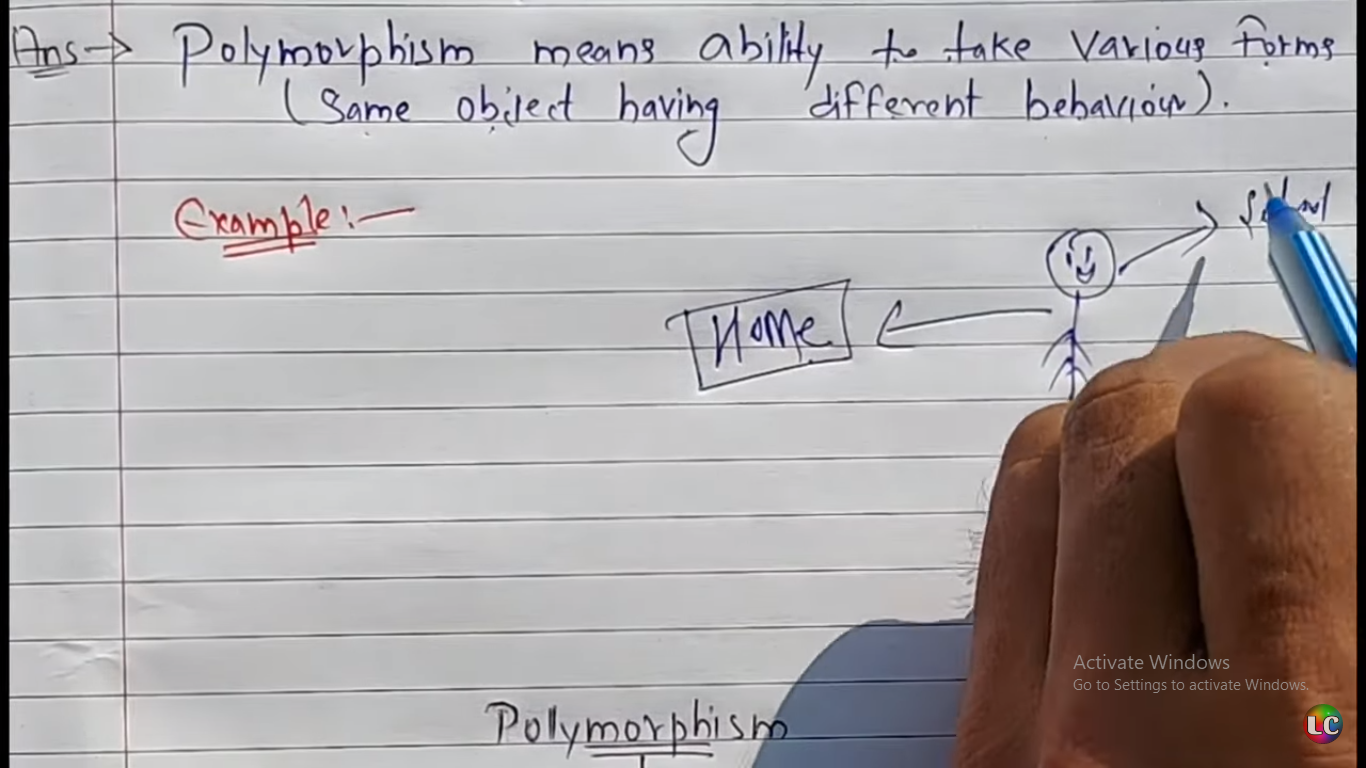 Ans → Polymorphism means ability to take various forms
(Same object having different behaviour).
Example:—
School
Home
Activate Windows
Go to Settings to activate Windows.
LC
Polymorphism